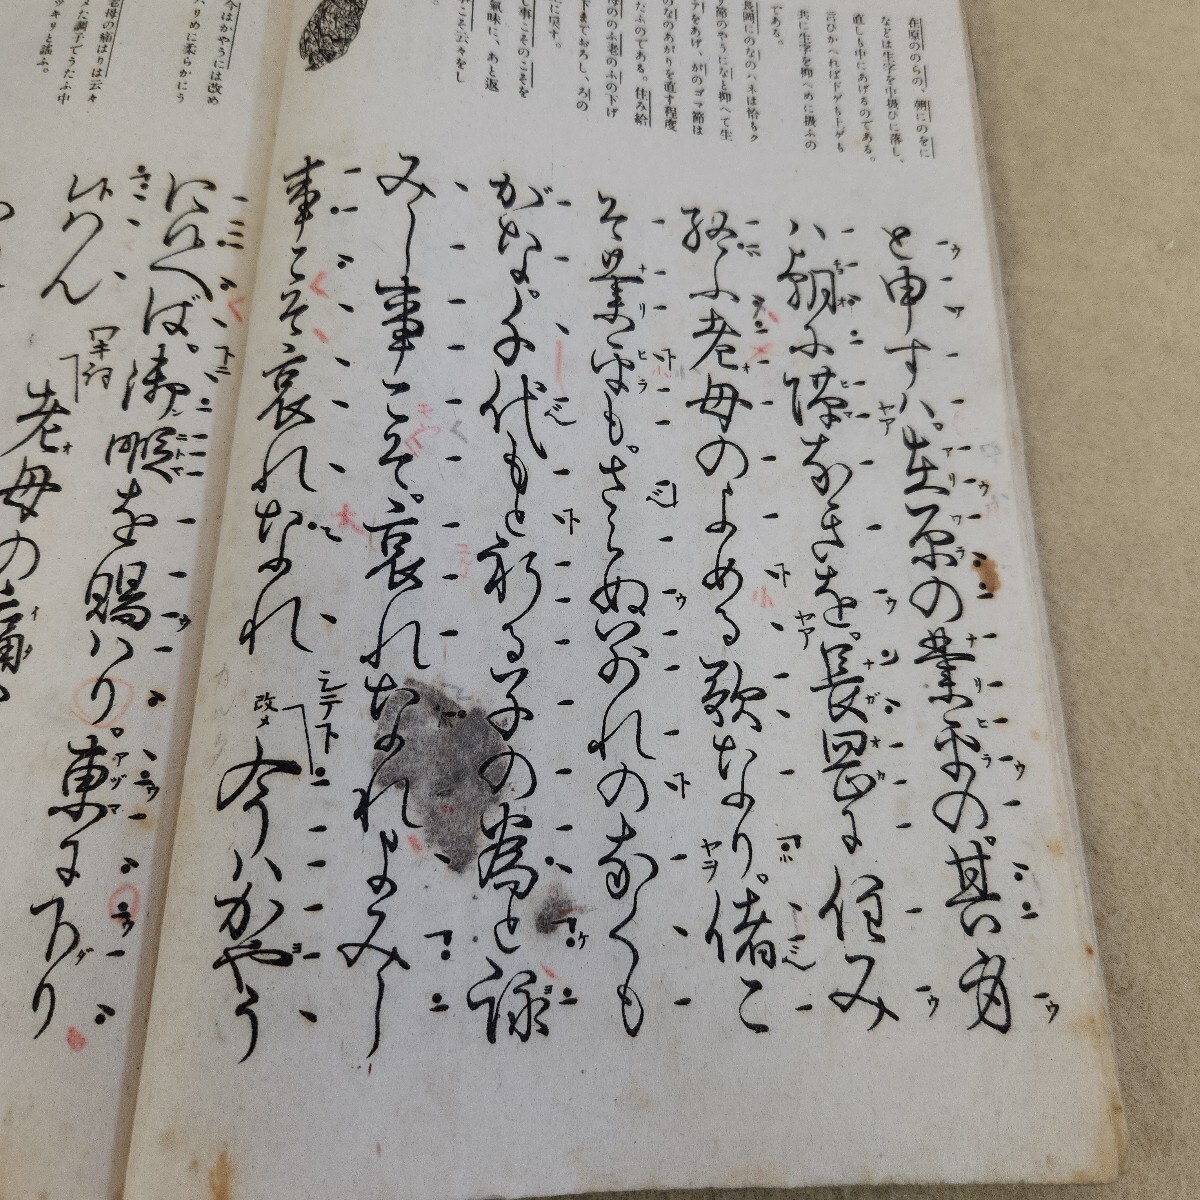 在原ののらの、朝にのをに
などは生字を中扱ひに落し、
直しも中にあげるのである。
言ひかへれば下ゲも上ゲも
共に生字を抑へめに扱ふの
である。
長岡にのなのハネは恰もク
り節のやうになと抑へて生
テをあげ、がのゴマ節は
のなのあがりを直す程度
たふのである。住み給
母ののふ老のふの下げ
下までおろし、ろの
に戻す。
し事こそのこそを
氣味に、あと返
こそ云々をし
と申すハ。在原の業平の。其身
ハ朝に隙なきを。長岡に住み
給ふ老母のよめる歌なり。偖こ
そ業平も。さらぬ別れのなくも
がな。千代もと祈る子の為と詠
みし事こそ。哀れなれよみし
事こそ哀れなれ
シテ下
改メ
今ハかやう
にさへば。御暇を賜ハり。東に下り
候ハん
ワキ詞
老母の痛
今はかやうには改め
ハリめに柔らかにう
老母の痛はりは云々
メた調子でうたふ中
ツキリと謡ふ。